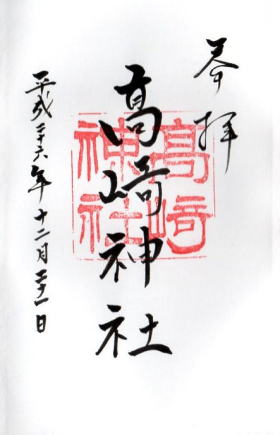 奉拝
高崎神社
高崎
神社
平成二十六年十二月二十一日